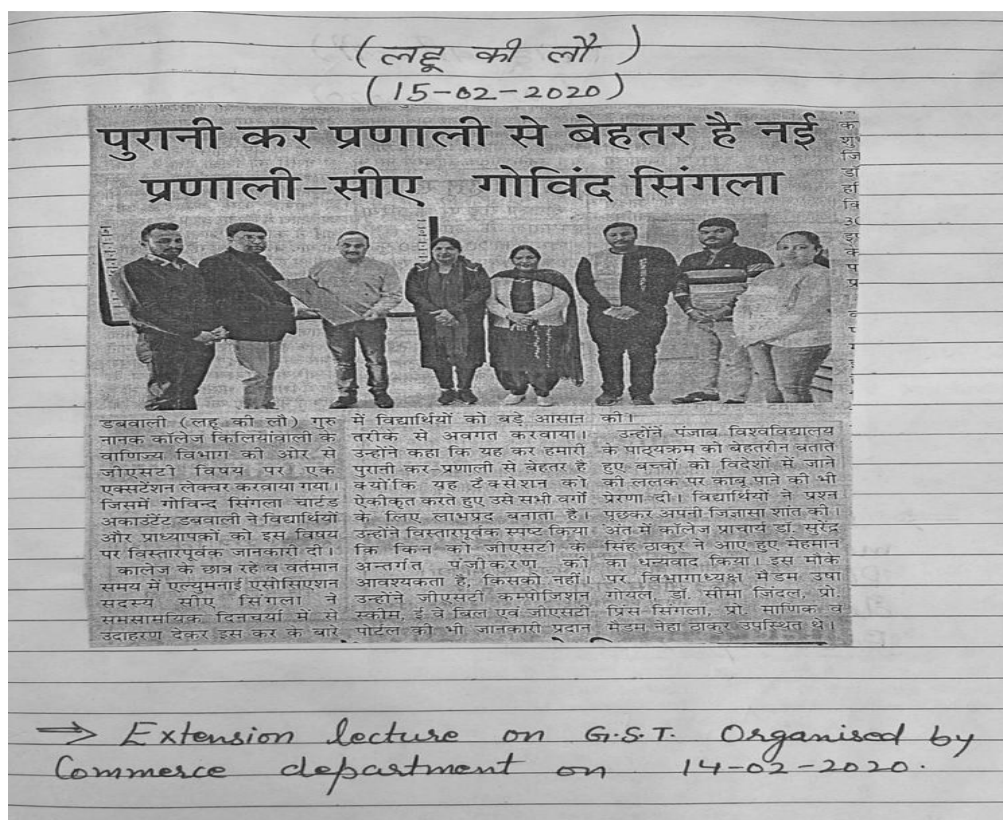 (लहू की लौ)
(15-02-2020)
पुरानी कर प्रणाली से बेहतर है नई
प्रणाली-सीए गोविंद सिंगला
डबवाली (लहू की लौ) गुरु
नानक कॉलेज किलियांवाली के
वाणिज्य विभाग की ओर से
जीएसटी विषय पर एक
एक्सटेंशन लेक्चर करवाया गया।
जिसमें गोविन्द सिंगला चार्टड
अकाउंटेंट डबवाली ने विद्यार्थियों
और प्राध्यापकों को इस विषय
पर विस्तारपूर्वक जानकारी दी।
कालेज के छात्र रहे व वर्तमान
समय में एल्युमनाई एसोसिएशन
सदस्य सीए सिंगला ने
समसामयिक दिनचर्या में से
उदाहरण देकर इस कर के बारे
में विद्यार्थियों को बड़े आसान
तरीके से अवगत करवाया।
उन्होंने कहा कि यह कर हमारी
पुरानी कर-प्रणाली से बेहतर है
क्योंकि यह टैक्सेशन को
ऐकीकृत करते हुए उसे सभी वर्गों
के लिए लाभप्रद बनाता है।
उन्होंने विस्तारपूर्वक स्पष्ट किया
कि किन को जीएसटी के
अन्तर्गत पंजीकरण की
आवश्यकता है, किसको नहीं।
उन्होंने जीएसटी कम्पोजिशन
स्कीम, ई वे बिल एवं जीएसटी
पोर्टल की भी जानकारी प्रदान
की।
उन्होंनें पंजाब विश्वविद्यालय
के पाठ्यक्रम को बेहतरीन बताते
हुए बच्चों को विदेशों में जाने
की ललक पर काबू पाने की भी
प्रेरणा दी। विद्यार्थियों ने प्रश्न
पूछकर अपनी जिज्ञासा शांत की।
अंत में कॉलेज प्राचार्य डॉ. सुरेंद्र
सिंह ठाकुर ने आए हुए मेहमान
का धन्यवाद किया। इस मौके
पर विभागाध्यक्ष मैडम उषा
गोयल, डॉ. सीमा जिंदल, प्रो.
प्रिंस सिंगला, प्रो. माणिक व
मैडम नेहा ठाकुर उपस्थित थे।
⇒ Extension lecture on G.S.T. Organised by
Commerce department on 14-02-2020.